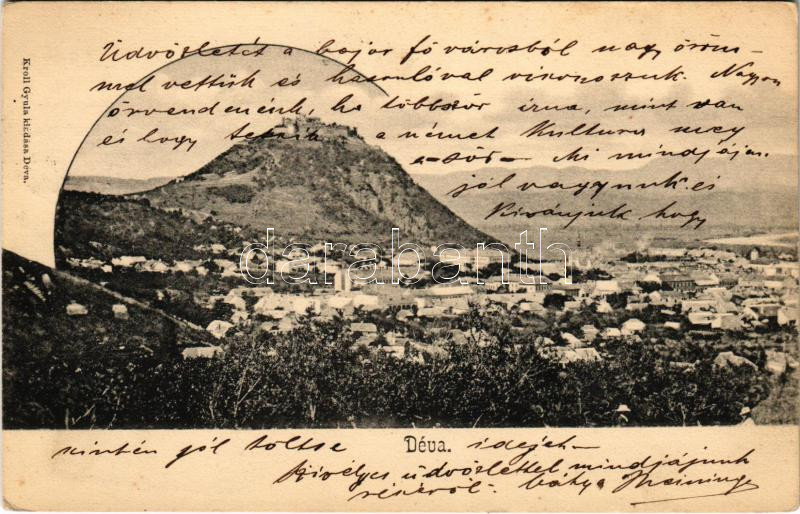 Kroll Gyula kiadása Déva.
Üdvözletét a bajor fővárosból nagy öröm-
mel vettük és hasonlóval viszonozzuk. Nagyon
örvendenénk, ha többször írna, mint van
és hogy tetszik a német Kultura meg
a sör. Mi mindjájan
jól vagyunk és
kívánjuk hogy
darabanth
szintén jól töltse idejét.
Déva.
Szivélyes üdvözlettel mindjájunk
részéről. bátya